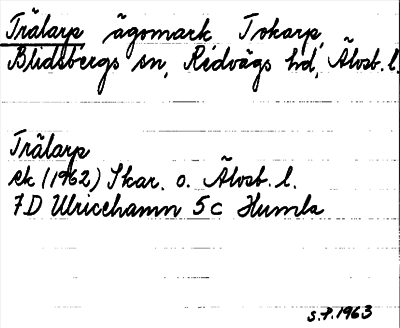 Trälarp ägomark Torkarp,
Blidsbergs sn, Redvägs hd, Älvsb. l.
Trälarp
ek (1962) Skar. o. Älvsb. l.
7D Ulricehamn 5c Humla
S.P. 1963